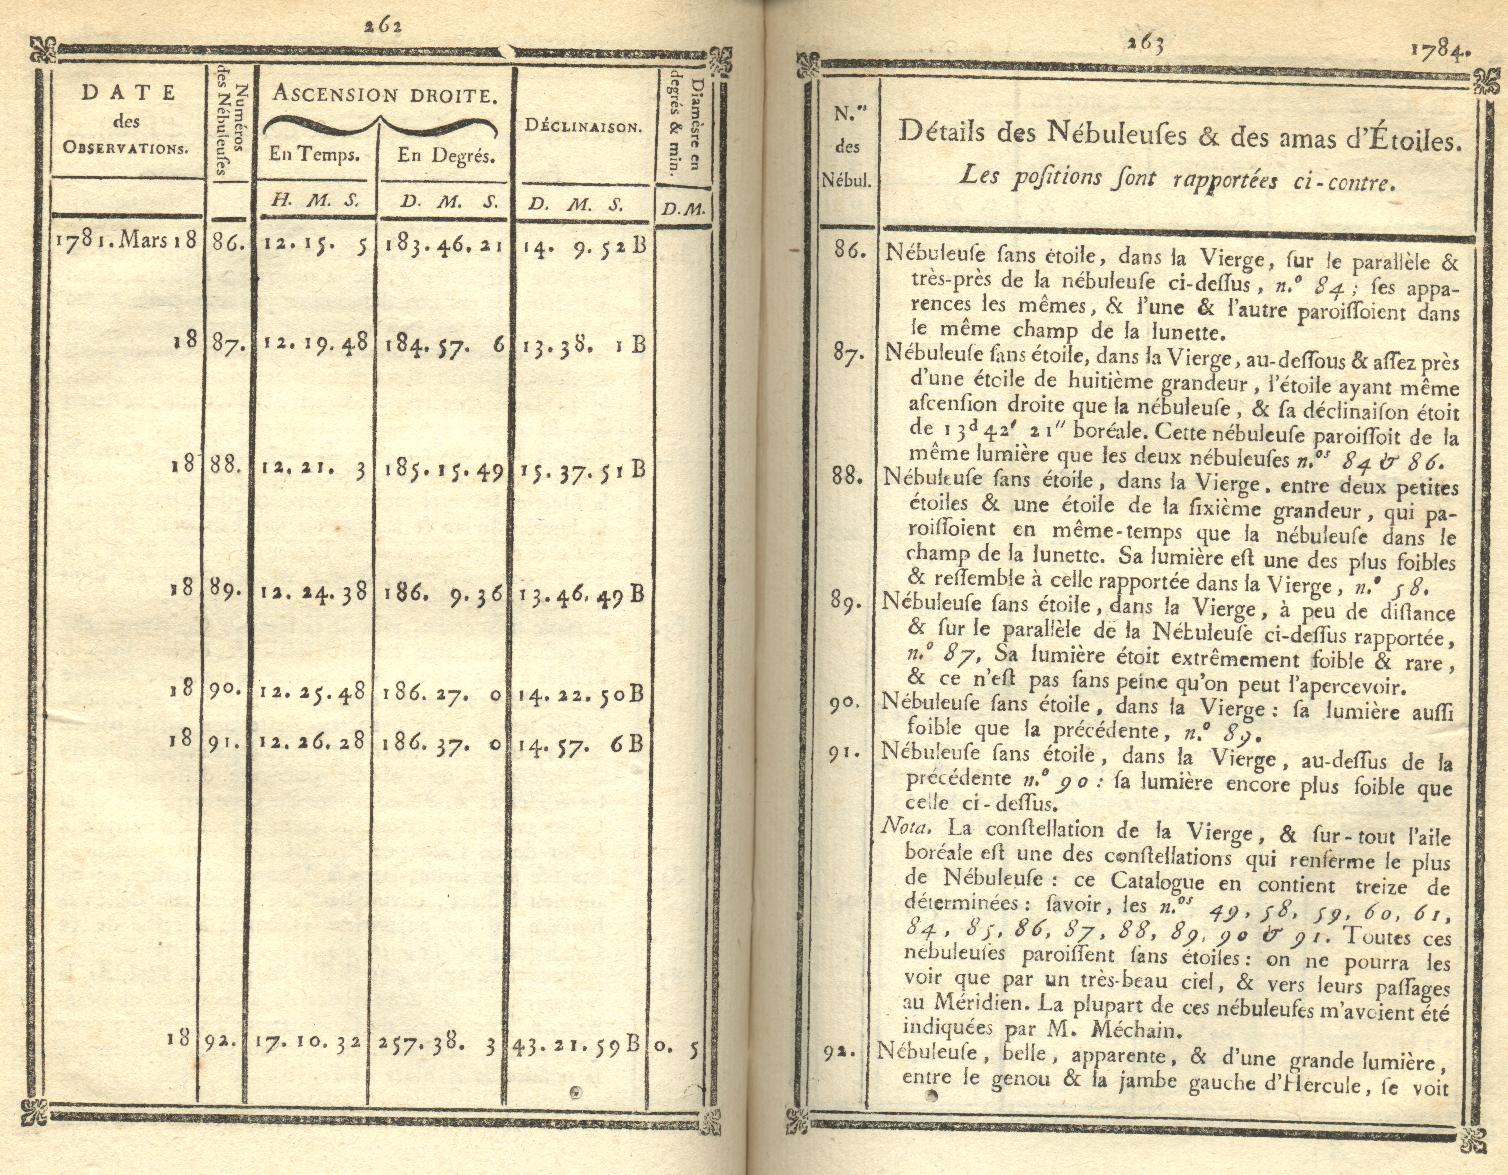 262
DATE
des
OBSERVATIONS.
Numéros
des Nébuleuſes
ASCENSION DROITE.
En Temps.
En Degrés.
DÉCLINAISON.
Diamèsre en
degrés & min.
H. M. S.
D. M. S.
D. M. S.
D. M.
1781. Mars 18 86. 12. 15. 5 183. 46. 21 14. 9. 52 B
18 87. 12. 19. 48 184. 57. 6 13. 38. 1 B
18 88. 12. 21. 3 185. 15. 49 15. 37. 51 B
18 89. 12. 24. 38 186. 9. 36 13. 46. 49 B
18 90. 12. 25. 48 186. 27. 0 14. 22. 50 B
18 91. 12. 26. 28 186. 37. 0 14. 57. 6 B
18 92. 17. 10. 32 257. 38. 3 43. 21. 59 B 0. 5
263
1784.
N.os
des
Nébul.
Détails des Nébuleuſes & des amas d'Étoiles.
Les poſitions ſont rapportées ci-contre.
86. Nébuleuſe ſans étoile, dans la Vierge, ſur le parallèle &
très-près de la nébuleuſe ci-deſſus, n.° 84; ſes appa-
rences les mêmes, & l'une & l'autre paroiſſoient dans
le même champ de la lunette.
87. Nébuleuſe ſans étoile, dans la Vierge, au-deſſous & aſſez près
d'une étoile de huitième grandeur, l'étoile ayant même
aſcenſion droite que la nébuleuſe, & ſa déclinaiſon étoit
de 13d 42′ 21″ boréale. Cette nébuleuſe paroiſſoit de la
même lumière que les deux nébuleuſes n.os 84 & 86.
88. Nébuleuſe ſans étoile, dans la Vierge. entre deux petites
étoiles & une étoile de la ſixième grandeur, qui pa-
roiſſoient en même-temps que la nébuleuſe dans le
champ de la lunette. Sa lumière eſt une des plus foibles
& reſſemble à celle rapportée dans la Vierge, n.° 58.
89. Nébuleuſe ſans étoile, dans la Vierge, à peu de diſtance
& ſur le parallèle de la Nébuleuſe ci-deſſus rapportée,
n.° 87. Sa lumière étoit extrêmement foible & rare,
& ce n'eſt pas ſans peine qu'on peut l'apercevoir.
90. Nébuleuſe ſans étoile, dans la Vierge: ſa lumière auſſi
foible que la précédente, n.° 89.
91. Nébuleuſe ſans étoile, dans la Vierge, au-deſſus de la
précédente n.° 90: ſa lumière encore plus foible que
celle ci-deſſus.
Nota. La conſtellation de la Vierge, & ſur-tout l'aile
boréale eſt une des conſtellations qui renferme le plus
de Nébuleuſe: ce Catalogue en contient treize de
déterminées: ſavoir, les n.os 49, 58, 59, 60, 61,
84, 85, 86, 87, 88, 89, 90 & 91. Toutes ces
nébuleuſes paroiſſent ſans étoiles: on ne pourra les
voir que par un très-beau ciel, & vers leurs paſſages
au Méridien. La plupart de ces nébuleuſes m'avoient été
indiquées par M. Méchain.
92. Nébuleuſe, belle, apparente, & d'une grande lumière,
entre le genou & la jambe gauche d'Hercule, ſe voit